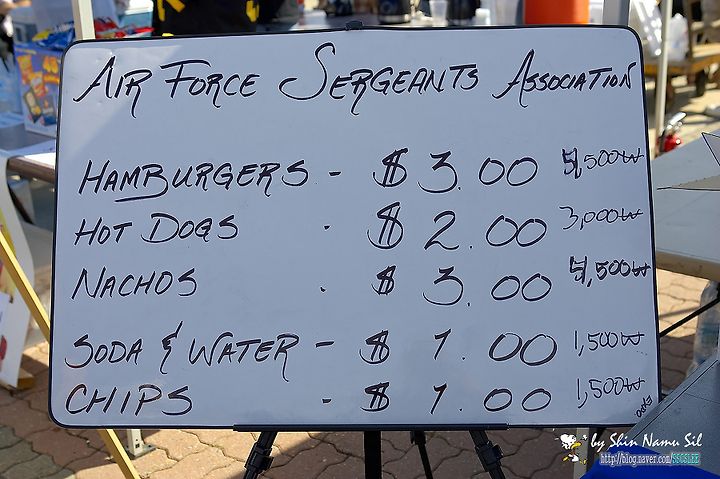 AIR FORCE SERGEANTS ASSOCIATION
HAMBURGERS - $ 3.00 4,500₩
HOT DOGS - $ 2.00 3,000₩
NACHOS - $ 3.00 4,500₩
SODA & WATER - $ 1.00 1,500₩
CHIPS - $ 1.00 1,500₩
by Shin Namu Sil
http://blog.naver.com/SSCSLEE